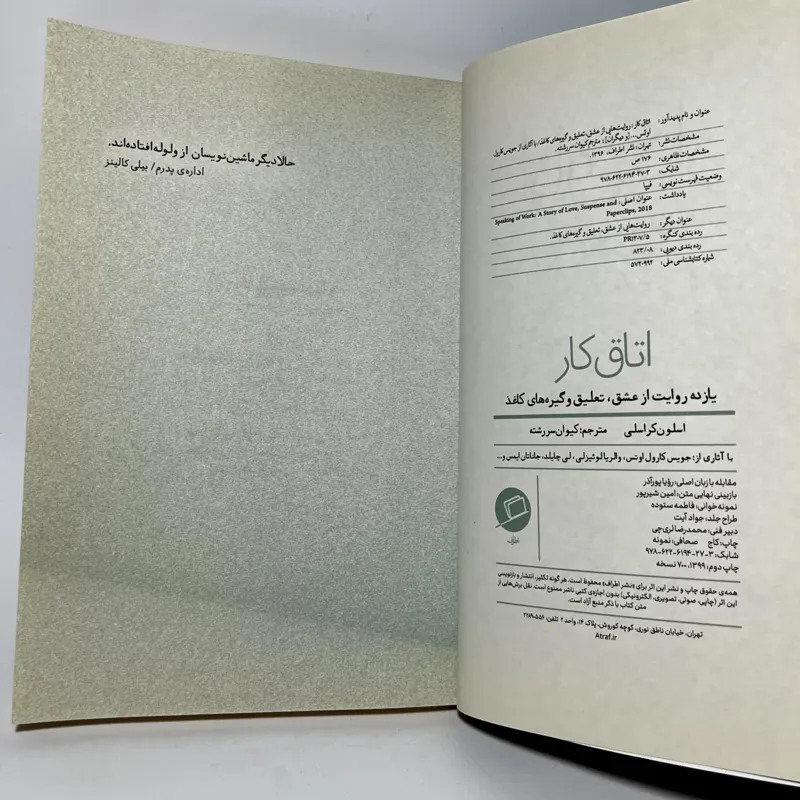 حالا دیگر ماشین‌نویسان از ولوله افتاده‌اند.
اداره‌ی پدرم/ بیلی کالینز
عنوان و نام پدیدآور: اتاق کار: روایت‌هایی از عشق، تعلیق و گیره‌های کاغذ/ با آثاری از جویس کارول
اوتس... [و دیگران] ؛ مترجم کیوان سررشته.
مشخصات نشر: تهران: نشر اطراف، ۱۳۹۶.
مشخصات ظاهری: ۱۷۶ ص
شابک: ۹۷۸-۶۲۲-۶۱۹۴-۲۷-۳
وضعیت فهرست‌نویسی: فیپا
یادداشت: عنوان اصلی: Speaking of Work: A Story of Love, Suspense and
Paperclips, 2018
عنوان دیگر: روایت‌هایی از عشق، تعلیق و گیره‌های کاغذ.
رده بندی کنگره: PR۱۳۰۷/۵
رده بندی دیویی: ۸۲۳/۰۸
شماره کتابشناسی ملی: ۵۷۲۰۹۹۲
اتاق کار
یازده روایت از عشق، تعلیق و گیره‌های کاغذ
اسلون کراسلی مترجم: کیوان سررشته
با آثاری از: جویس کارول اوتس، والریا لوئیزلی، لی چایلد، جاناتان ایمس و...
مقابله با زبان اصلی: رؤیا پورآذر
بازبینی نهایی متن: امین شیرپور
نمونه‌خوانی: فاطمه ستوده
طراح جلد: جواد آیت
دبیر فنی: محمدرضا لرى‌چی
چاپ: کاج صحافی: نمونه
شابک: ۳-۲۷-۶۱۹۴-۶۲۲-۹۷۸
چاپ دوم: ۱۳۹۹، ۷۰۰ نسخه
اطراف
همه‌ی حقوق چاپ و نشر این اثر برای «نشر اطراف» محفوظ است. هرگونه تکثیر، انتشار و بازنویسی
این اثر (چاپی، صوتی، تصویری، الکترونیکی) بدون اجازه‌ی کتبی ناشر ممنوع است. نقل برش‌هایی از
متن کتاب با ذکر منبع آزاد است.
تهران، خیابان ناطق نوری، کوچه کوروش، پلاک ۱۴، واحد ۲ تلفن: ۲۲۸۹۰۵۵۶
Atraf.ir